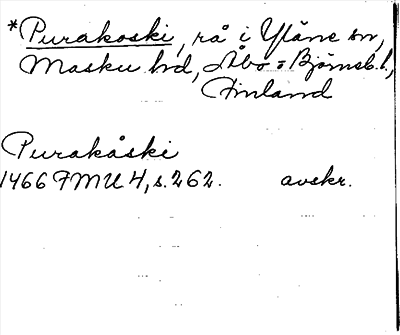 *Purakoski, rå i Yläne sn,
Masku hd, Åbo o Björneb. l.,
Finland
Purakåski
1466 FMU 4, s. 262. avskr.